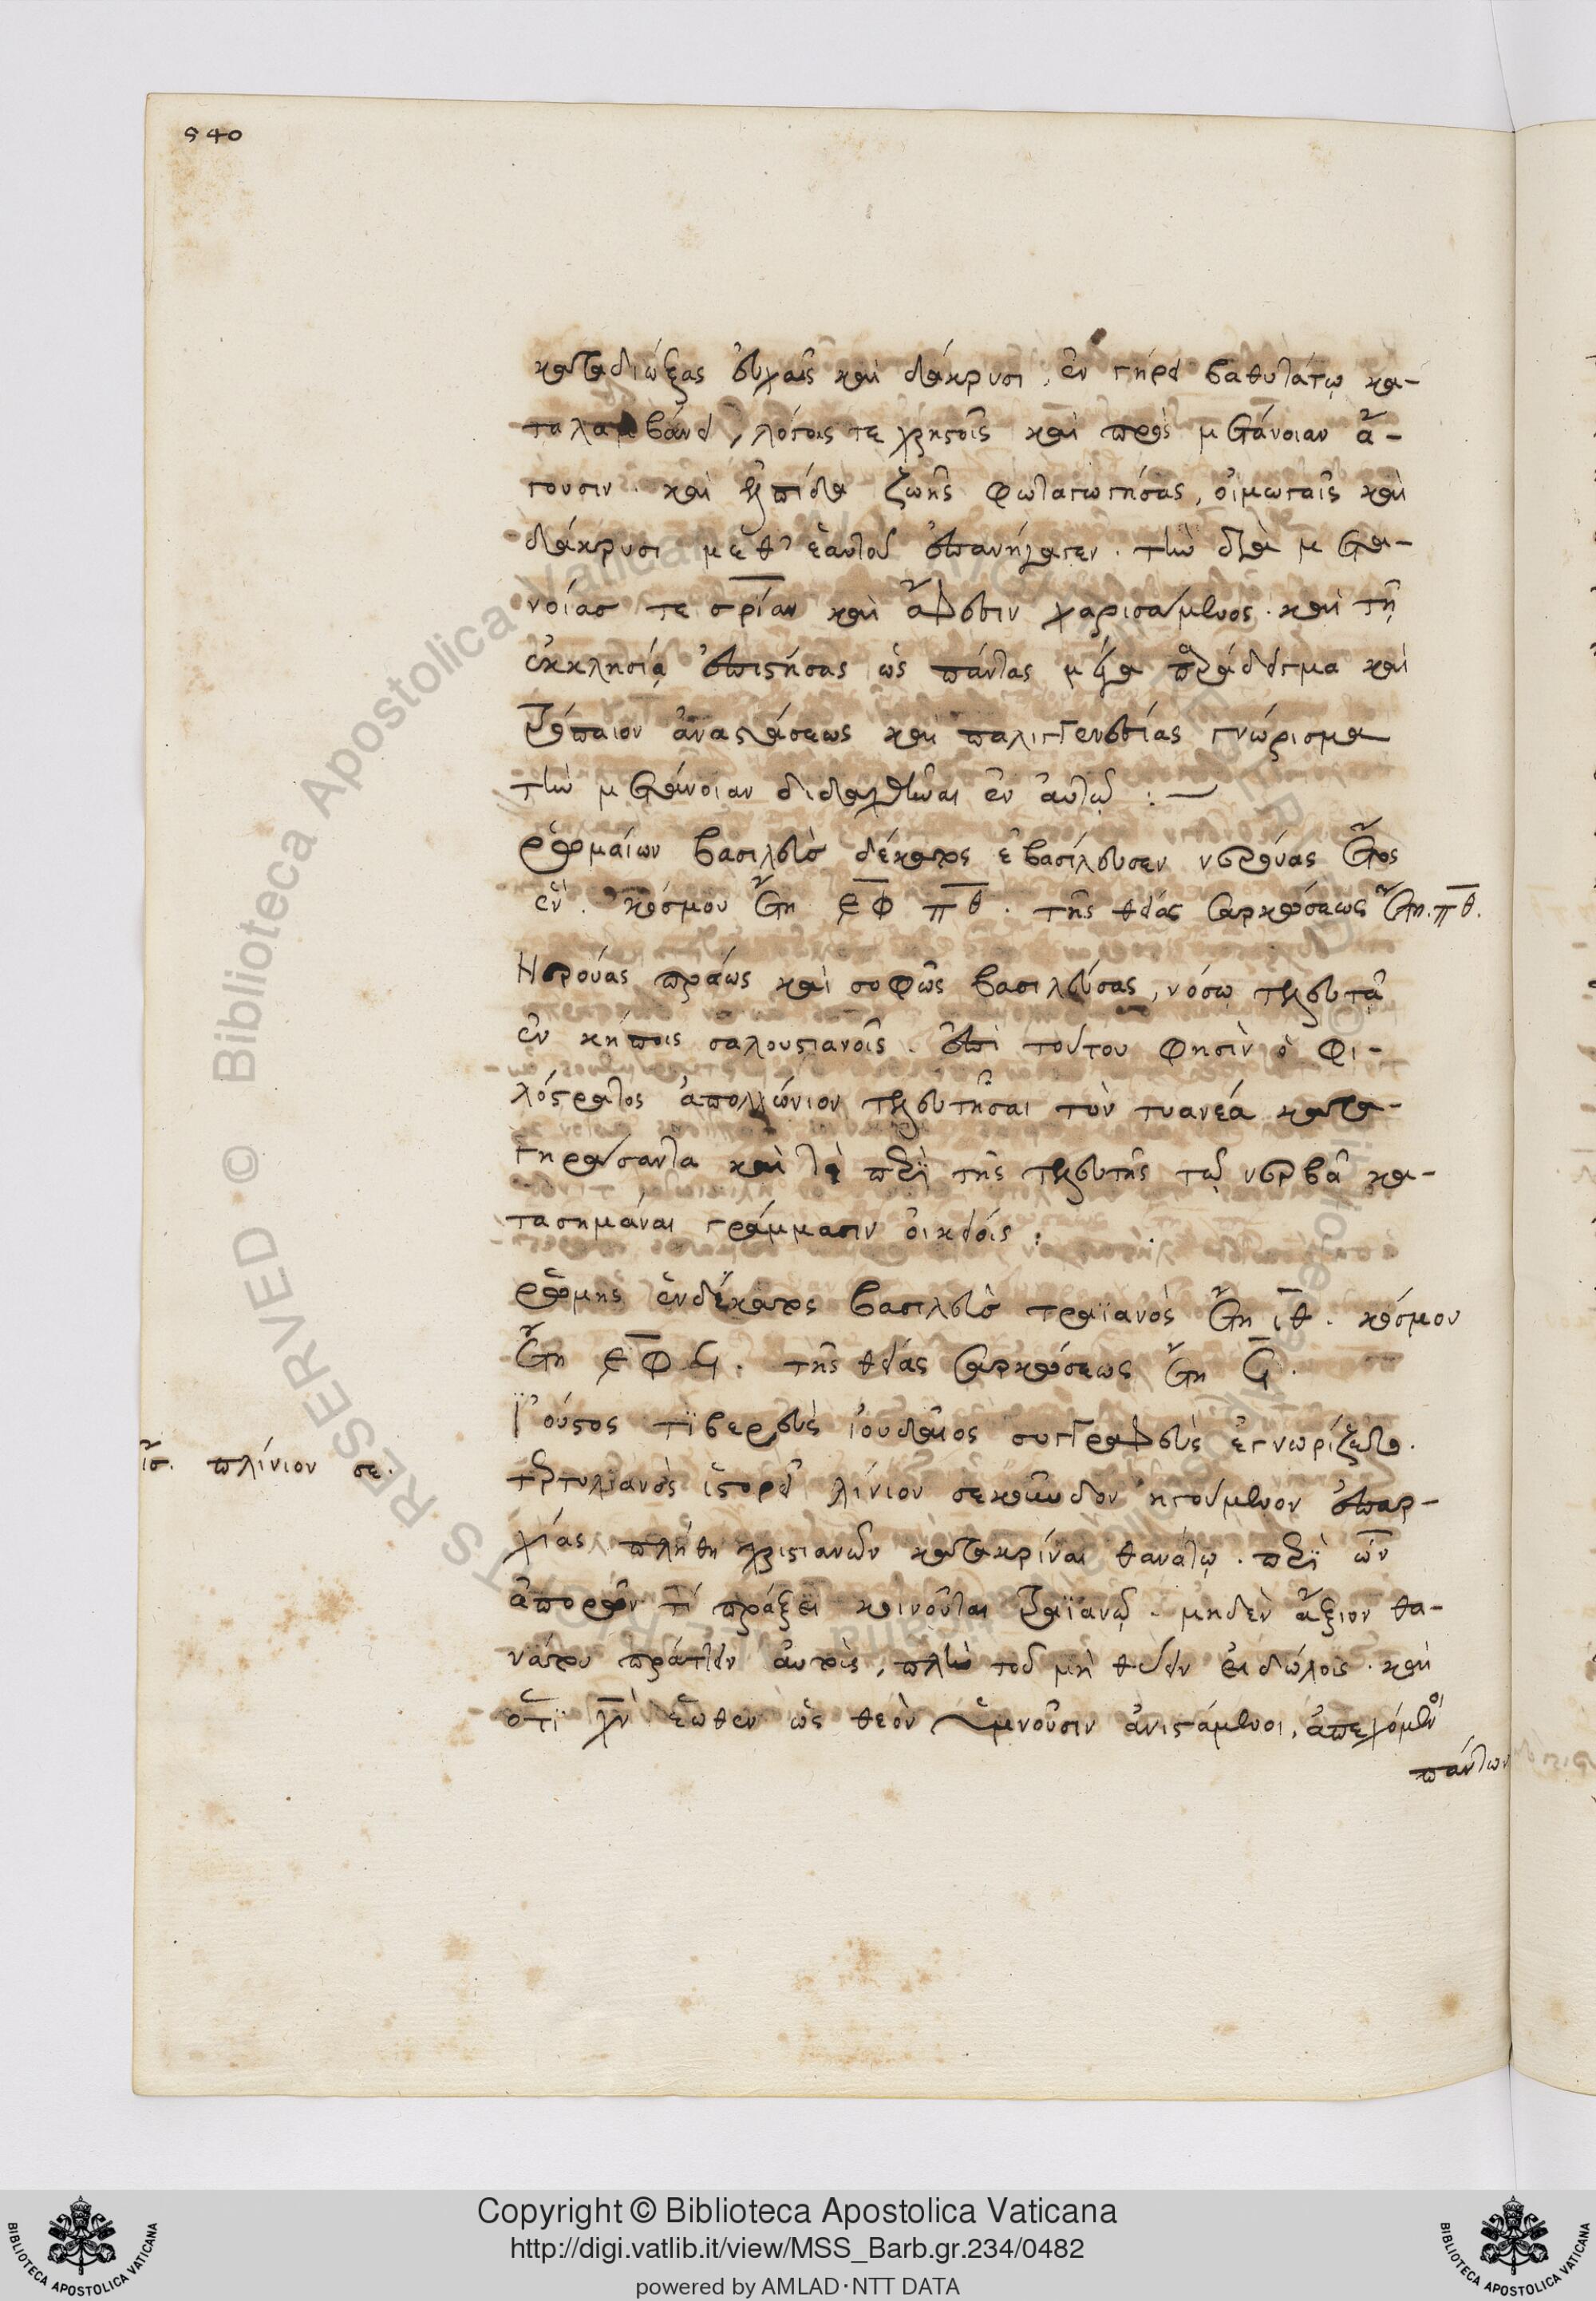 540
καταδιώξας εὐχαῖς καὶ δάκρυσι, ἐν γήρει βαθυτάτῳ κα-
ταλαμβάνει, λόγοις τε χρηστοῖς καὶ πρὸς μετάνοιαν ἄ-
γουσιν. καὶ ἐλπίδα ζωῆς φωταγωγήσας, οἰμωγαῖς καὶ
δάκρυσι μεθ' ἑαυτοῦ ἐπανήγαγεν. τὴν διὰ μετα-
νοίας τε σρίαν καὶ ἄφεσιν χαρισάμενος. καὶ τῇ
ἐκκλησίᾳ ἐπιστήσας ὡς πάντας μέγα παράδειγμα καὶ
τρόπαιον ἀναστάσεως καὶ παλιγγενεσίας γνώρισμα
τὴν μετάνοιαν διδαχθῆναι ἐν αὐτῷ :—
ῥωμαίων βασιλεὺς δέκατος ἐβασίλευσεν νερούας ἔτος
ἕν. κόσμου ἔτη ͵εφπθ. τῆς θείας σαρκώσεως ἔτη πθ.
Νερούας πράως καὶ σοφῶς βασιλεύσας, νόσῳ τελευτᾷ
ἐν κήποις σαλουστιανοῖς. ἐπὶ τούτου φησὶν ὁ φι-
λόστρατος ἀπολλώνιον τελευτῆσαι τὸν τυανέα κατα-
γηράσαντα καὶ τὰ περὶ τῆς τελευτῆς τῷ νερβᾷ κα-
τασημᾶναι γράμμασιν οἰκείοις :
ῥώμης ἑνδέκατος βασιλεὺς τραϊανὸς ἔτη ιθ. κόσμου
ἔτη ͵εφϟ. τῆς θείας σαρκώσεως ἔτη ϟ.
Ἰοῦστος τιβερεὺς ἰουδαῖος συγγραφεὺς ἐγνωρίζετο.
ἴσ. πλίνιον σε.
τερτυλιανὸς ἱστορεῖ λίνιον σεκοῦνδον ἡγούμενον ἐπαρ-
χίας πλήθη χριστιανῶν κατακρῖναι θανάτῳ. περὶ ὧν
ἀπορῶν τί πράξει κοινοῦται τραϊανῷ. μηδὲν ἄξιον θα-
νάτου πράττειν αὐτοὺς, πλὴν τοῦ μὴ θύειν εἰδώλοις. καὶ
ὅτι χν ἕωθεν ὡς θεὸν ὑμνοῦσιν ἀνιστάμενοι, ἀπεχόμενοι
πάντων
Copyright © Biblioteca Apostolica Vaticana
http://digi.vatlib.it/view/MSS_Barb.gr.234/0482
powered by AMLAD·NTT DATA